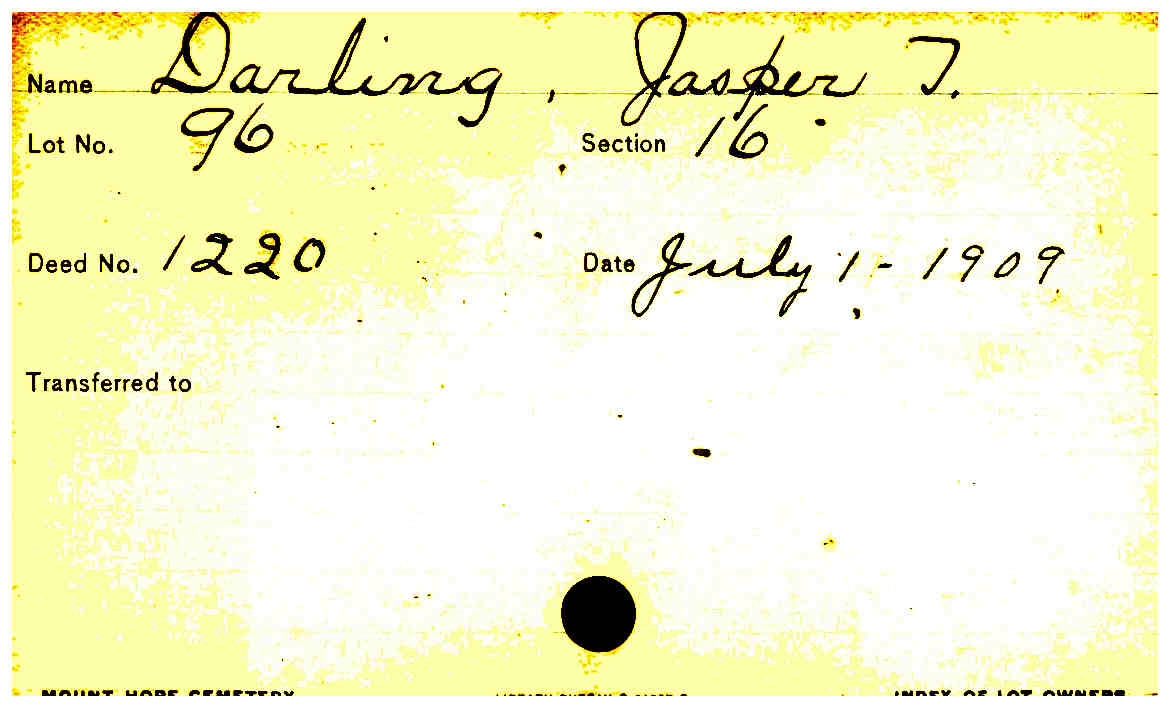 Name Darling, Jasper T.
Lot No. 96 Section 16
Deed No. 1220 Date July 1 - 1909
Transferred to
MOUNT HOPE CEMETERY INDEX OF LOT OWNERS